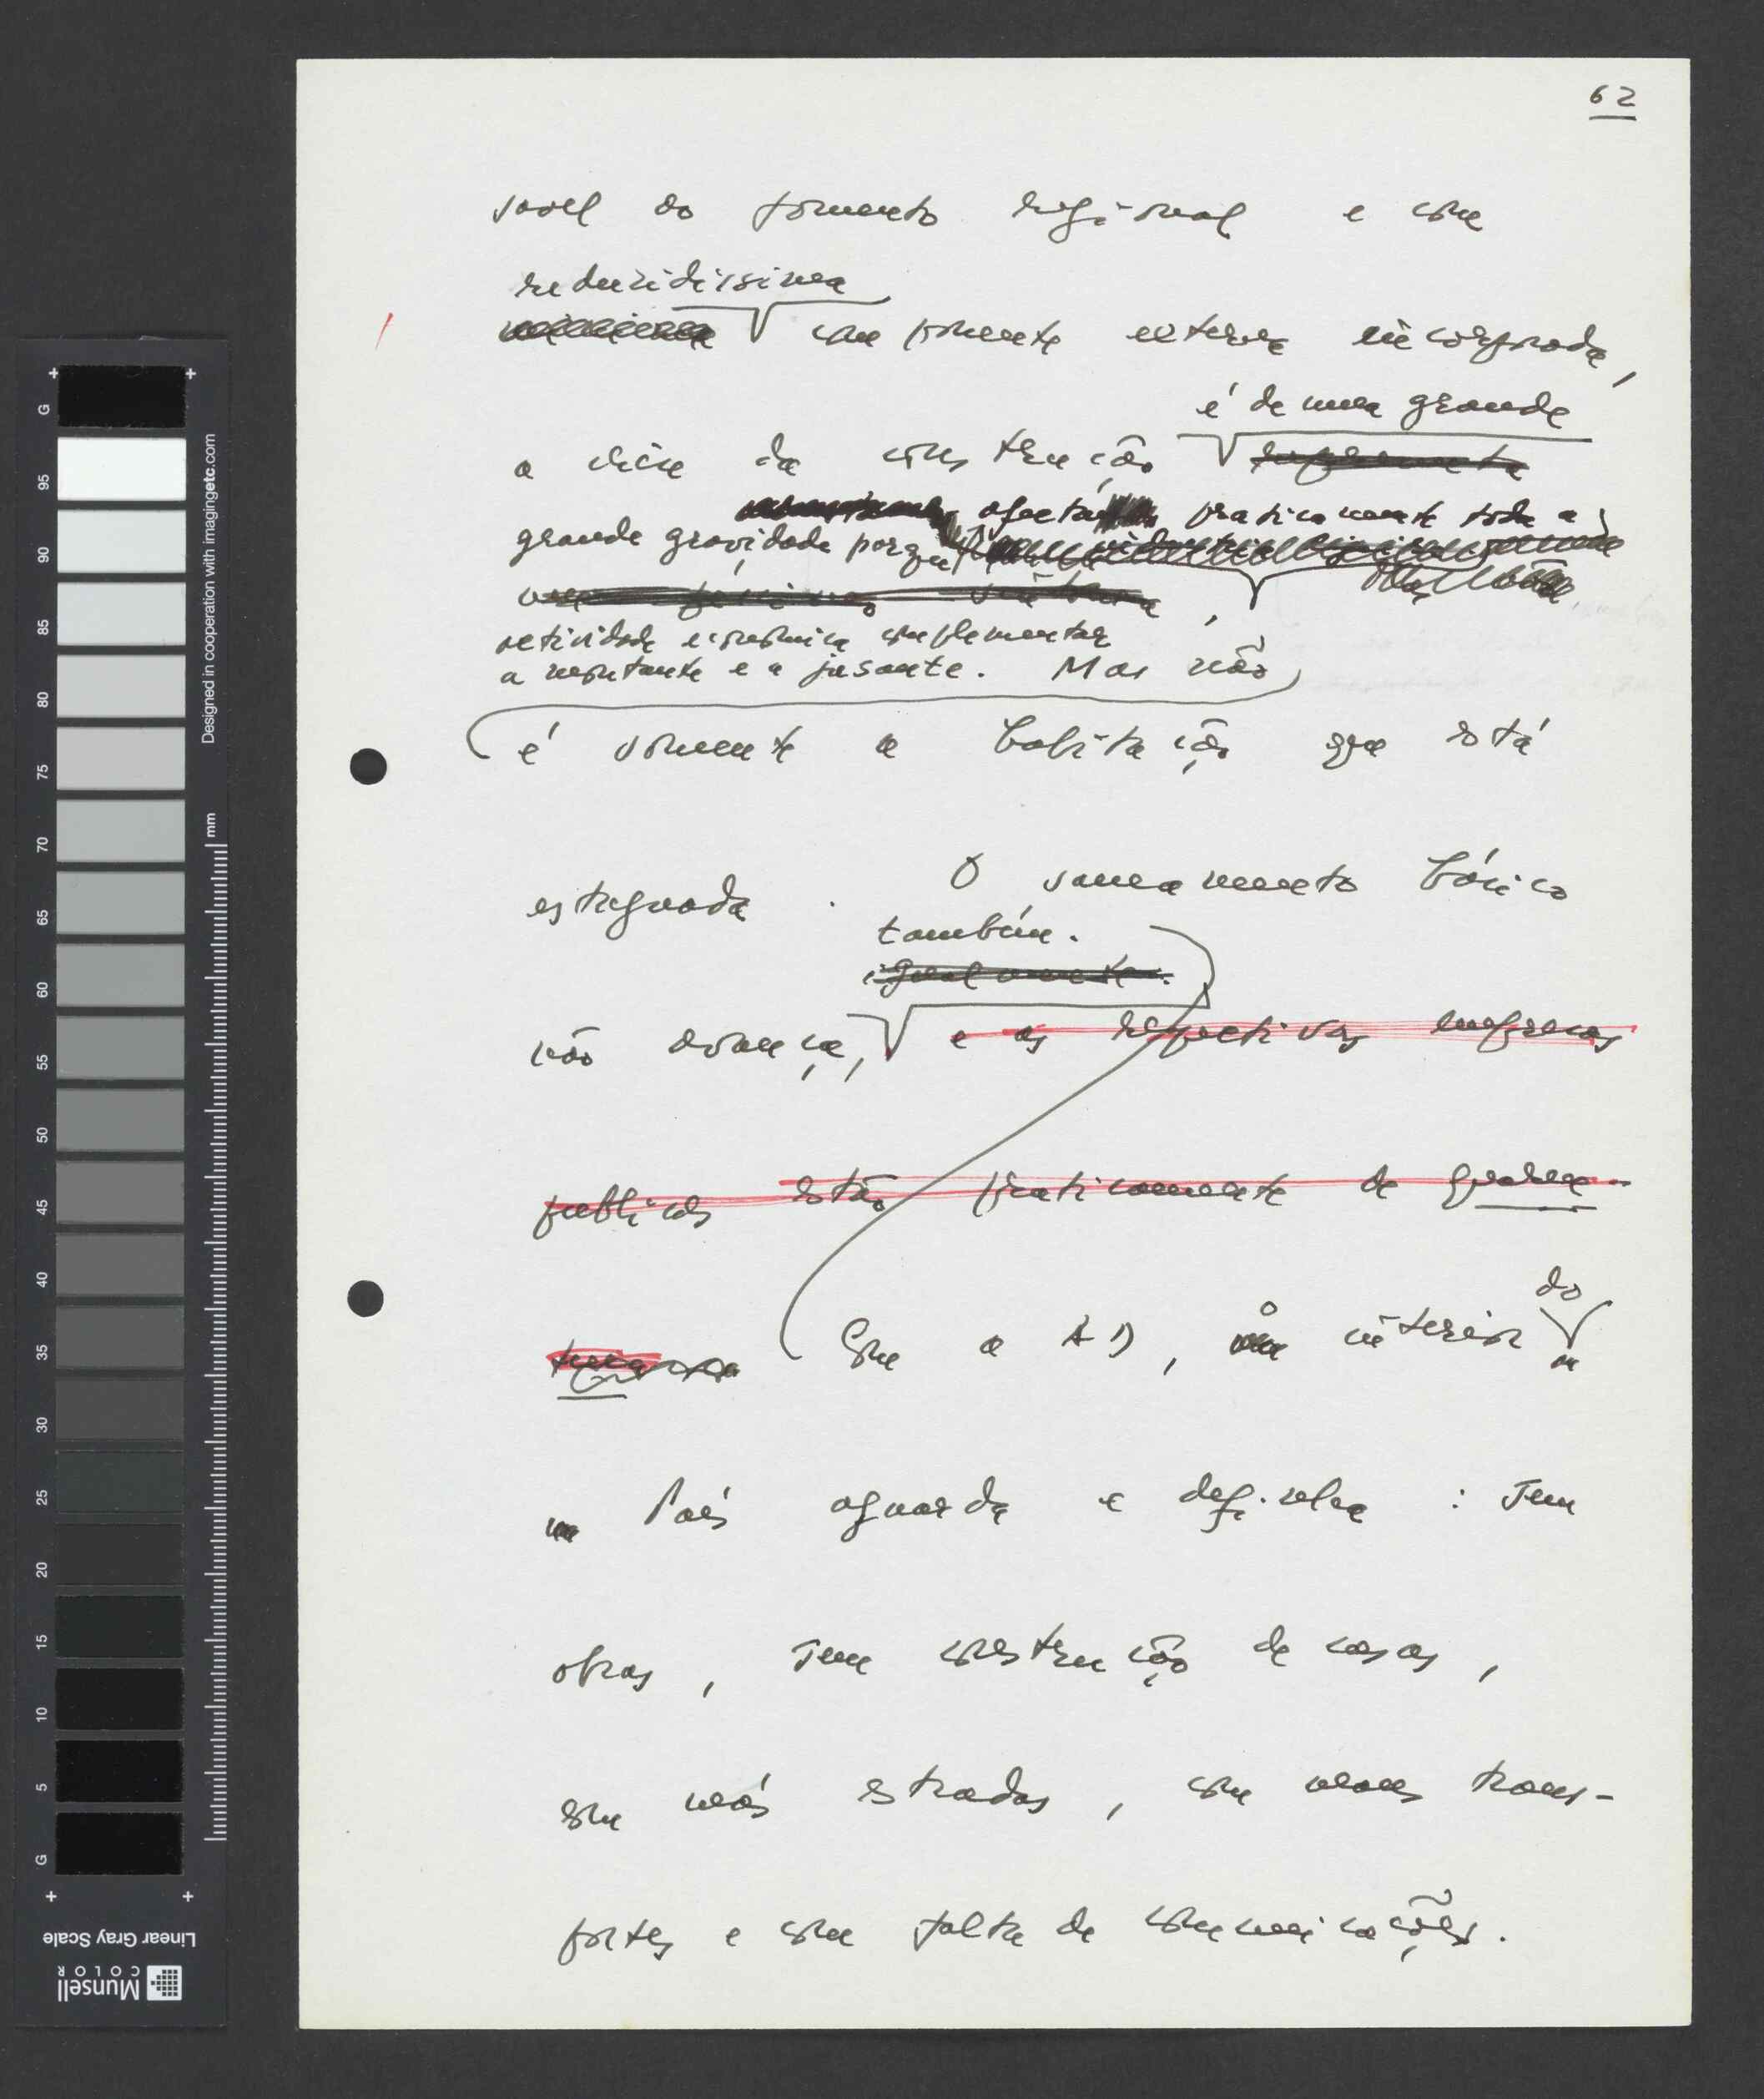 62
sável do fomento regional e com
reduzidíssima
componente externa incorporada,
é de uma grande
a crise da construção
afecta praticamente toda a
grande gravidade porque
actividade económica complementar
a montante e a jusante. Mas não
é somente a habitação que está
estagnada. O saneamento básico
também.
igualmente.
não avança, e as respectivas empresas
públicas estão praticamente de quaren-
tena Com a AD, o interior do
País aguarda e definha: sem
obras, sem construção de casas,
com más estradas, com maus trans-
portes e com falta de comunicações.
Designed in cooperation with imagingetc.com
mm
G 95 90 85 80 75 70 65 60 55 50 45 40 35 30 25 20 15 10 5 G
Linear Gray Scale
Munsell
COLOR